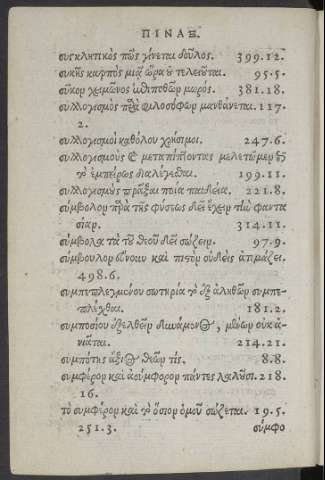 ΠΙΝΑΞ.
συγκλητικὸς πῶς γίνεται δοῦλος. 399.12.
συκῆς καρπὸς μιᾷ ὥρᾳ οὐ τελειοῦται. 95.5.
σῦκον χειμῶνος ἐπιποθῶν μωρός. 381.18.
συλλογισμὸς παρὰ φιλοσόφων μανθάνεται. 117.
2.
συλλογισμοὶ καθόλου χρήσιμοι. 247.6.
συλλογισμοὺς καὶ μεταπίπτοντας μελετῶμεν
τὸ ἐμπείρως διαλέγεσθαι. 199.11.
συλλογισμοὺς πρᾶξαι ποία παιδεία. 221.8.
σύμβολον παρὰ τῆς φύσεως δεῖ ἔχειν τὴν φαντα
σίαν. 314.11.
σύμβολα τὰ τοῦ θεοῦ δεῖ σώζειν. 97.9.
σύμβουλον εὔνουν καὶ πιστὸν οὐδεὶς ἀτιμάζει.
498.6.
συμπεπλεγμένου σωτηρία τὸ ἐξ ἀληθῶν συμπε-
πλέχθαι. 181.2.
συμποσίου ἐξελθεῖν δυνάμενος, μένων οὐκ ἀ-
νιᾶται. 214.21.
συμπότης ἄξιος θεῶν τίς. 8.8.
συμφέρον καὶ ἀσύμφορον πάντες λαλοῦσι. 218.
16.
τὸ συμφέρον καὶ τὸ ὅσιον ὁμοῦ σώζεται. 19.5.
251.3. σύμφο